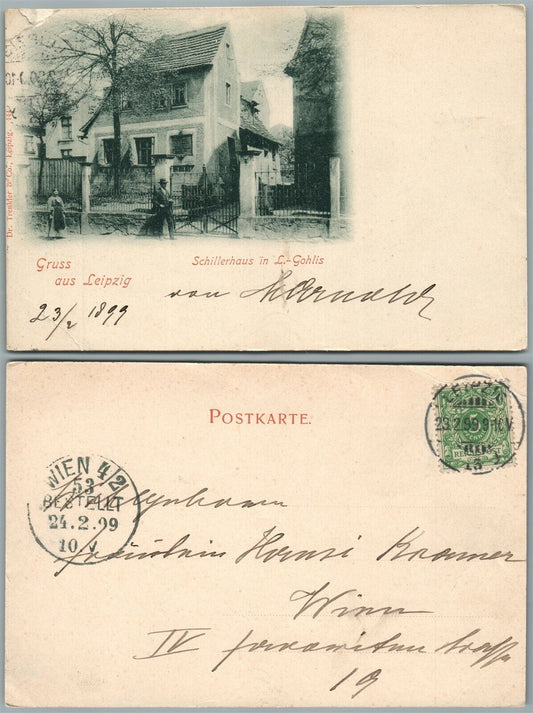 Dr. Trenkler & Co., Leipzig.
Gruss
aus Leipzig
Schillerhaus in L.-Gohlis
23/2 1899
von Arnold
POSTKARTE.
LEIPZIG
23.2.99.9-10V.
13
WIEN 4/2
53
BESTELLT
24.2.99
10.V
Hochwohlgeboren
Fräulein Hansi Kramer
Wien
IV favoritenstrasse
19